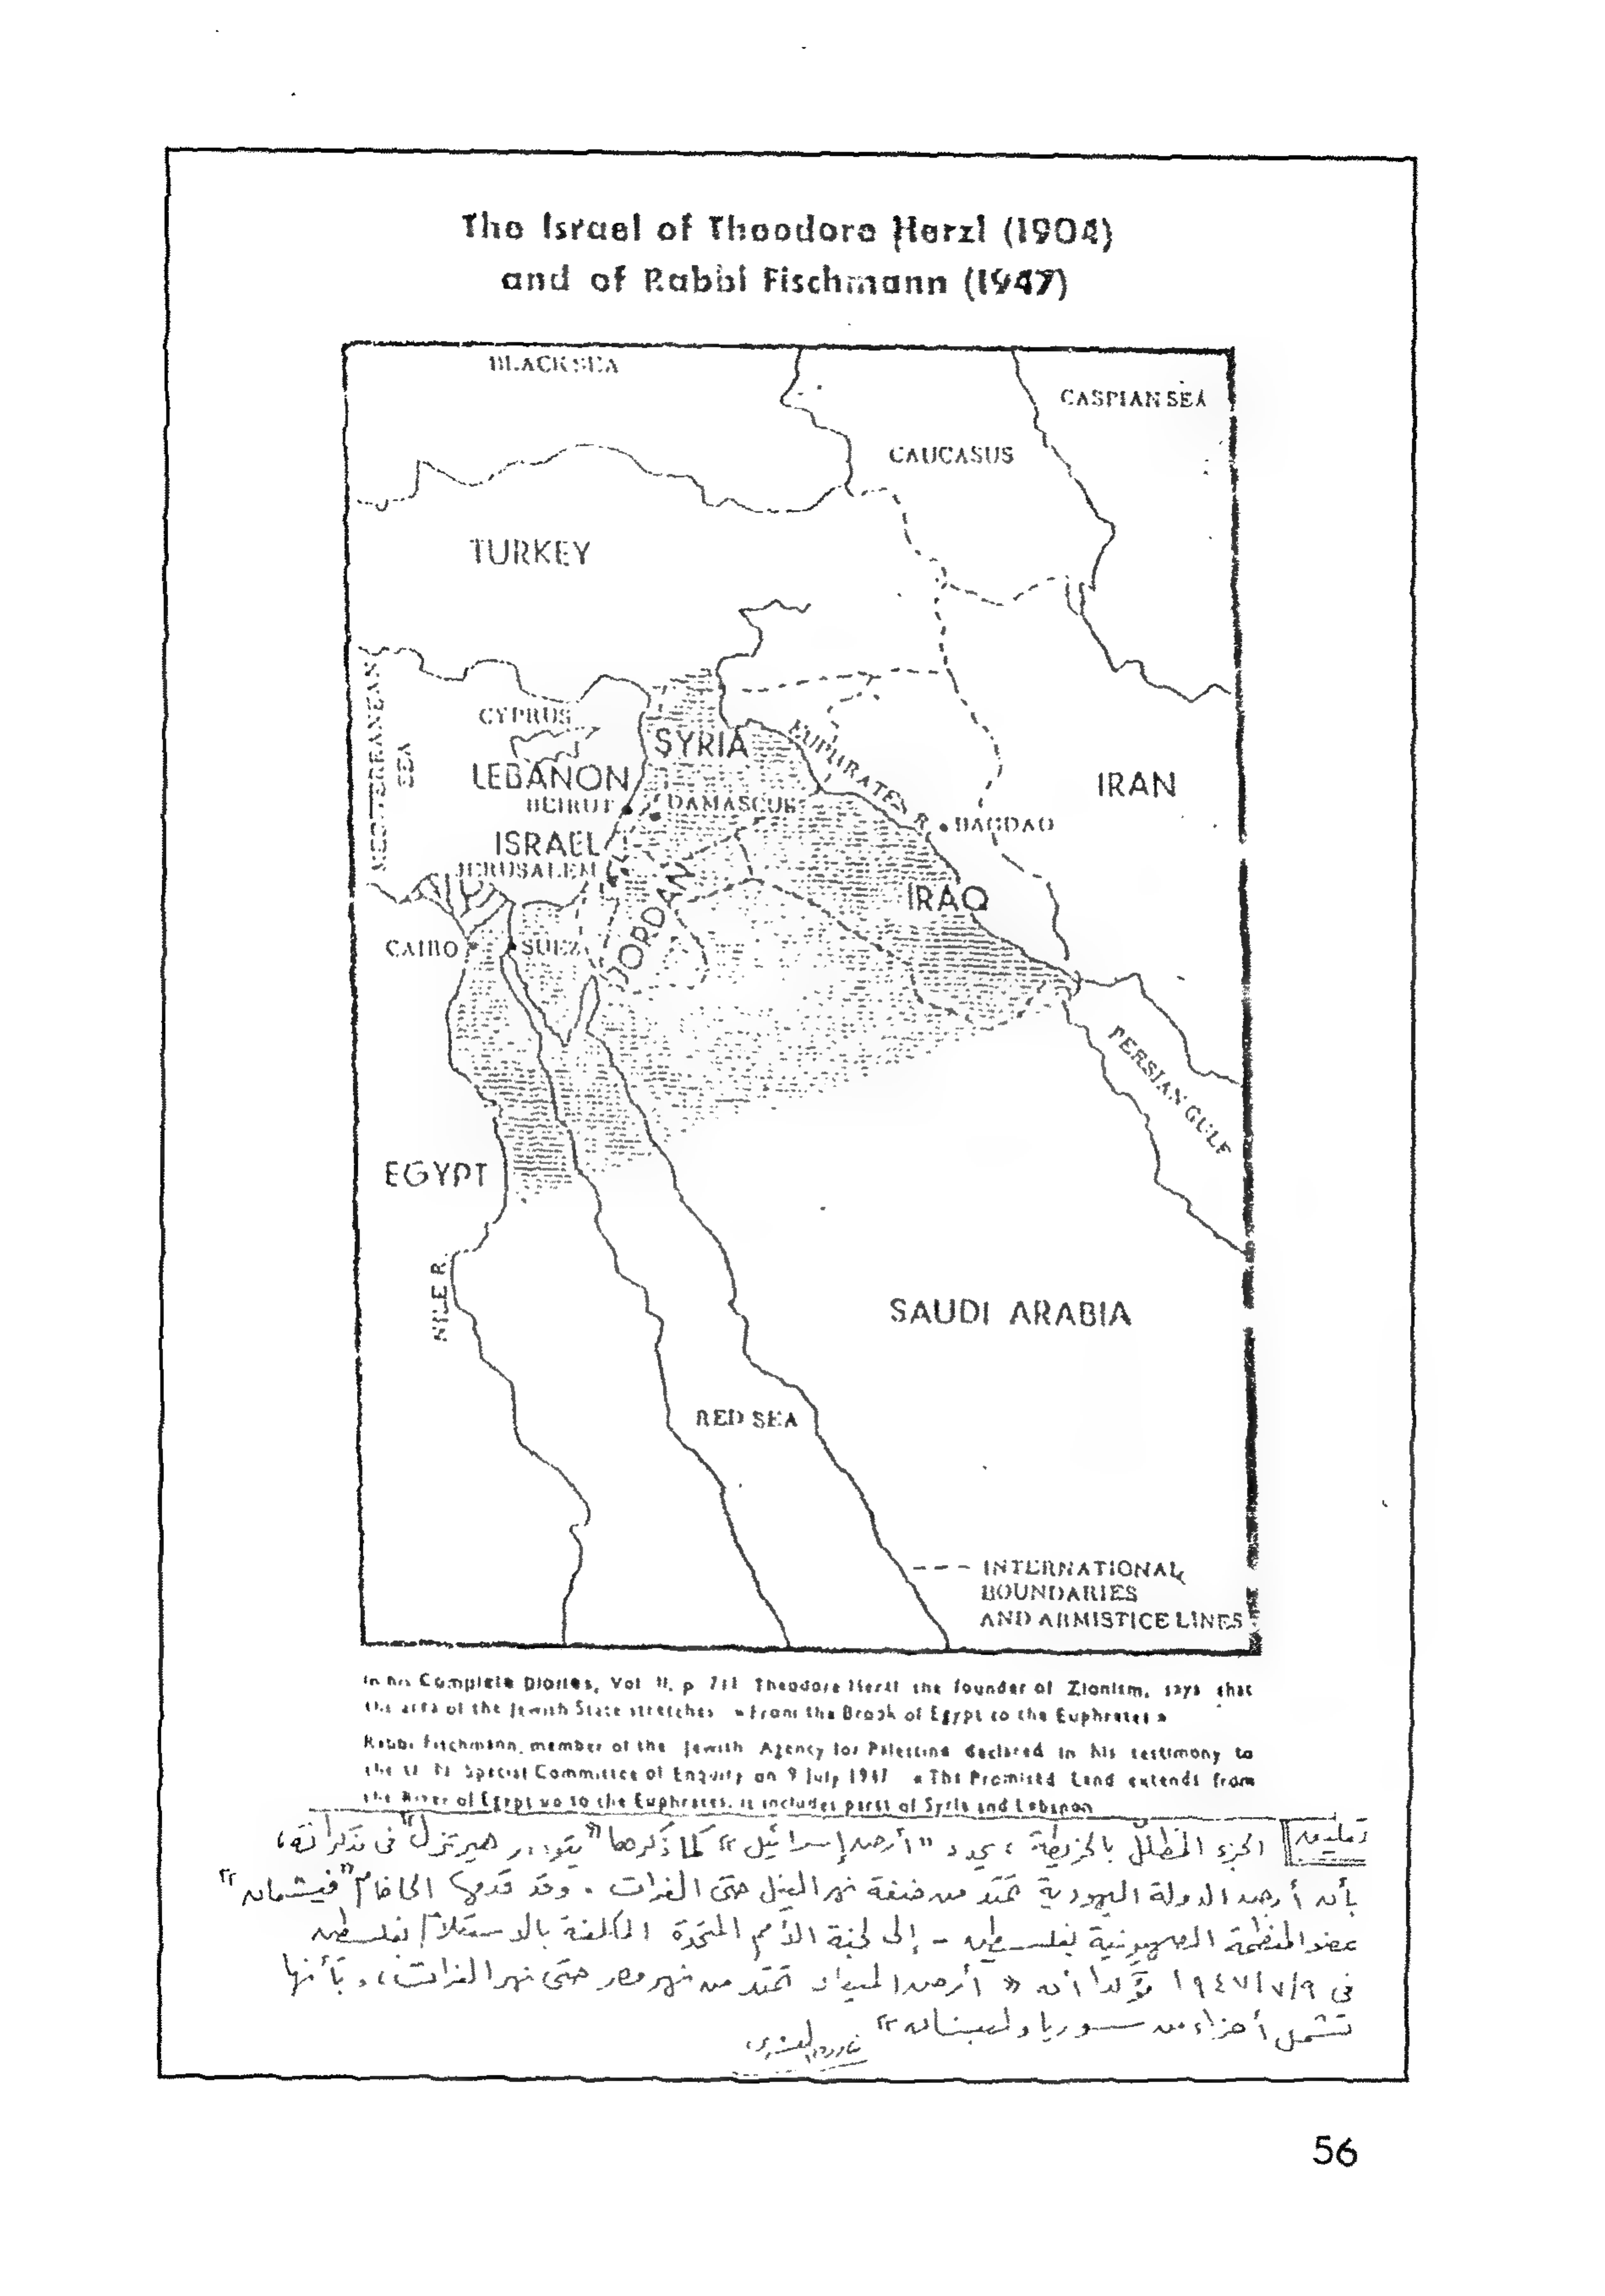 The Israel of Theodore Herzl (1904)
and of Rabbi Fischmann (1947)
BLACK SEA
CASPIAN SEA
CAUCASUS
TURKEY
MEDITERRANEAN
SEA
CYPRUS
SYRIA
EUPHRATES R.
LEBANON
IRAN
BEIRUT
DAMASCUS
BAGDAD
ISRAEL
JERUSALEM
JORDAN
IRAQ
CAIRO
SUEZ
PERSIAN GULF
EGYPT
NILE R.
SAUDI ARABIA
RED SEA
INTERNATIONAL
BOUNDARIES
AND ARMISTICE LINES
In his Complete Diaries, Vol. II, p. 711 Theodore Herzl the founder of Zionism, says that
the area of the Jewish State stretches «From the Brook of Egypt to the Euphrates»
Rabbi Fischmann, member of the Jewish Agency for Palestine declared in his testimony to
the U. N. Special Committee of Enquiry on 9 July 1947 «The Promised Land extends from
the River of Egypt up to the Euphrates, it includes parts of Syria and Lebanon
الجزء المظلل بالخريطة، يحدد "أرض إسرائيل" كما ذكرها "تيودور هيرتزل" فى مذكراته،
بأن أرض الدولة اليهودية تمتد من ضفة نهر النيل حتى الفرات. وقد قدمها الحاخام "فيشمان"
عضو المنظمة الصهيونية لفلسطين - إلى لجنة الأمم المتحدة المكلفة بالاستعلام لفلسطين
فى ١٩٤٧/٧/٩ مؤكدا أن "أرض الميعاد تمتد من نهر مصر حتى نهر الفرات، وبأنها
تشمل أجزاء من سوريا ولبنان"
56